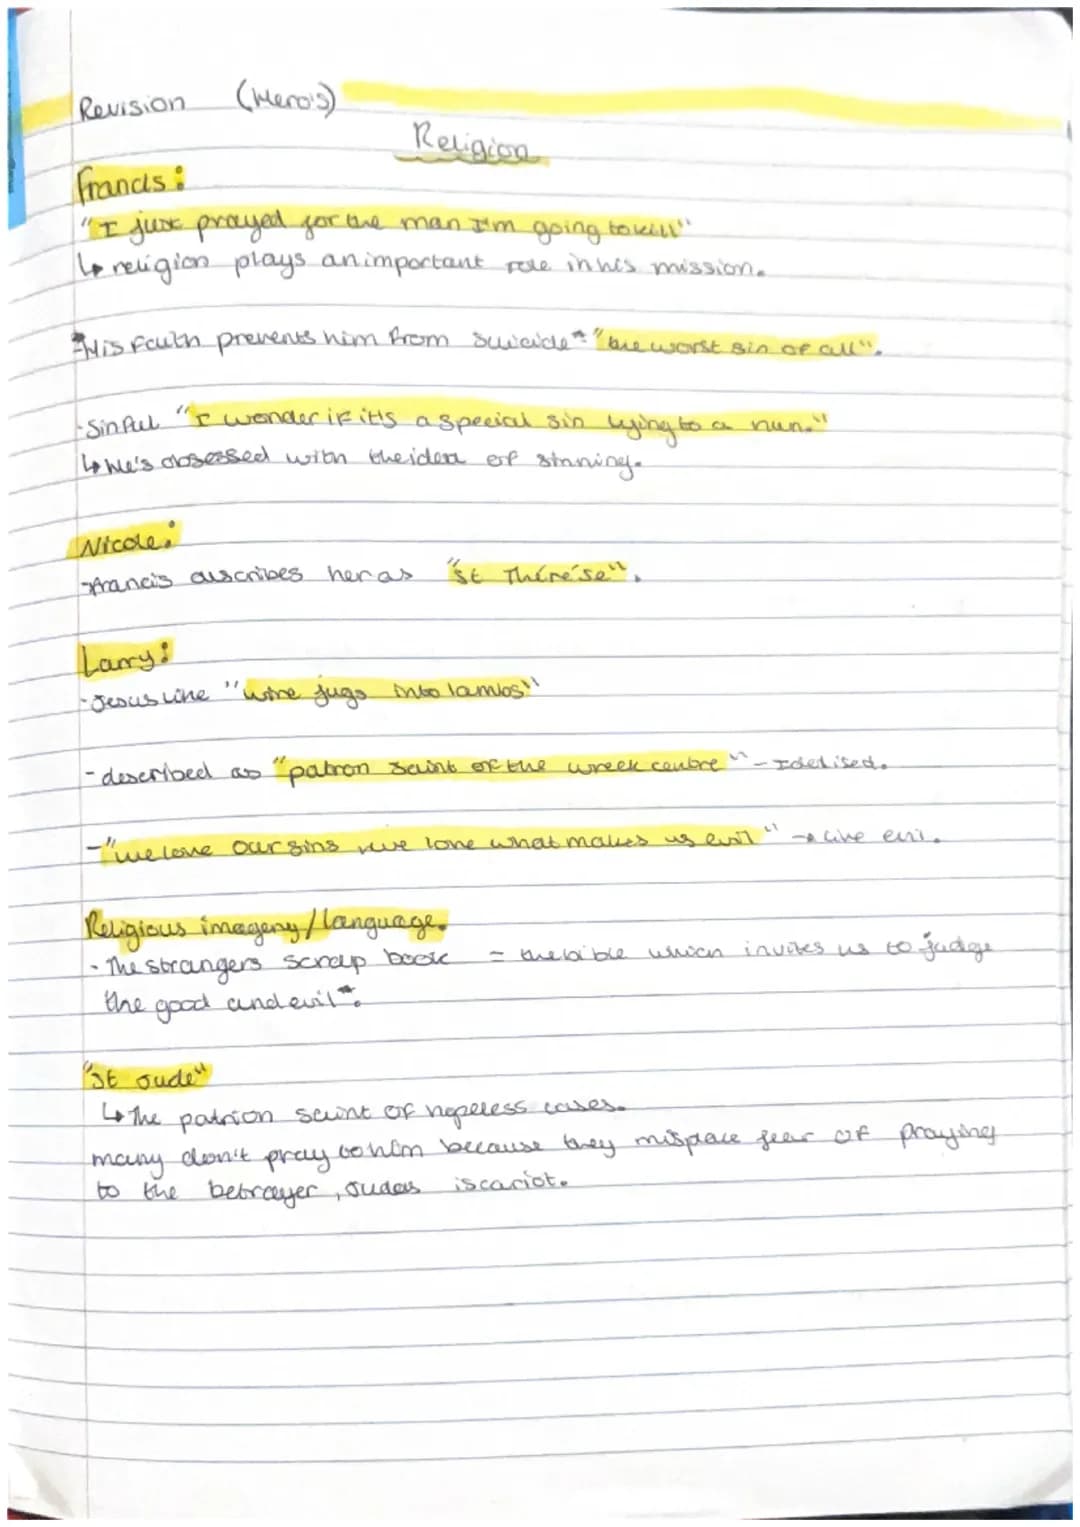 Revision (Hero's)
Religion
Francis:
"I just prayed for the man I'm going to kill"
↳ religion plays an important role in his mission.
-His faith prevents him from suicide - "the worst sin of all".
-Sinful "I wonder if it's a special sin lying to a nun."
↳ He's obsessed with the idea of sinning.
Nicole:
-Francis describes her as "St Thérèse".
Larry:
-Jesus like "wine jugs into lambs"
- described as "patron saint of the wreck centre" - Idelised.
-"we love our sins we love what makes us evil" → like evil.
Religious imagery/language.
- The strangers scrap book = the bible which invites us to judge
the good and evil.
"St Jude"
↳ The patrion saint of hopeless cases.
many don't pray to him because they misplace fear of praying
to the betrayer, Judas iscariot.